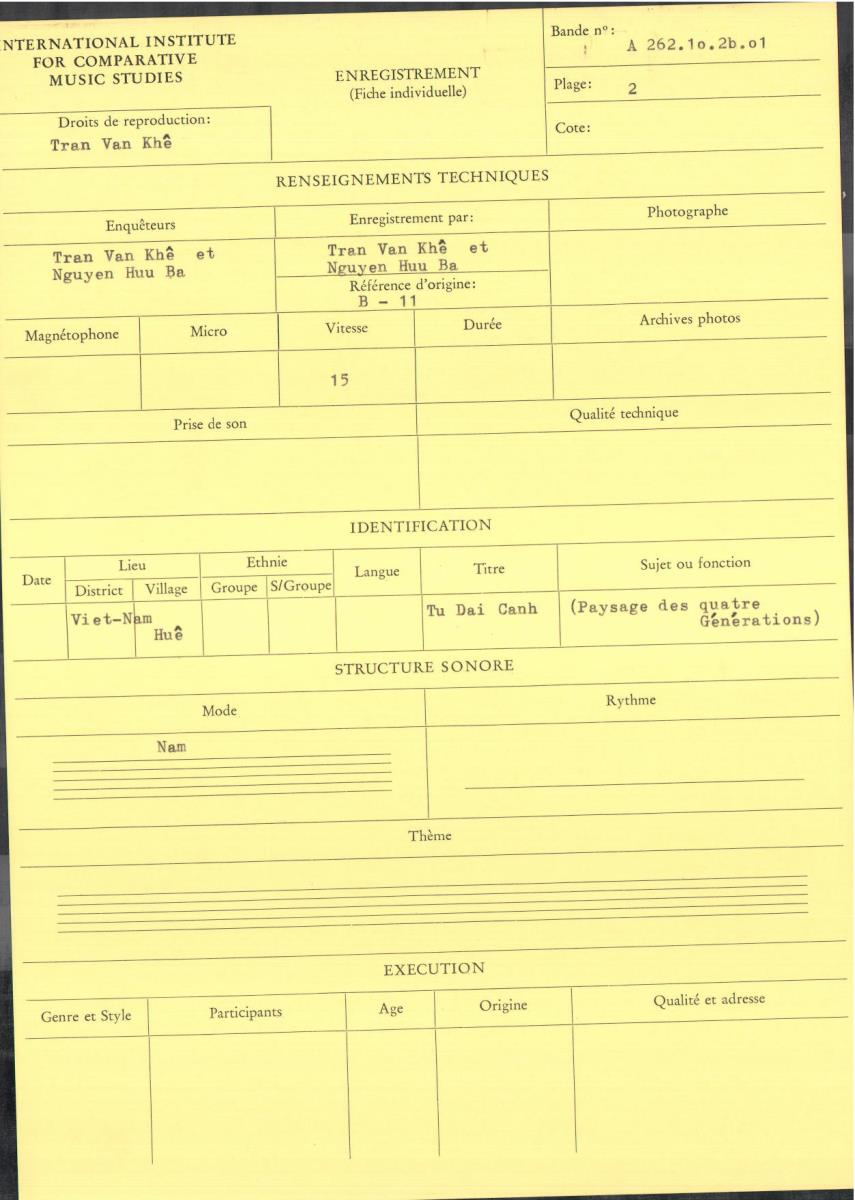 INTERNATIONAL INSTITUTE
FOR COMPARATIVE
MUSIC STUDIES
Droits de reproduction:
Tran Van Khê
ENREGISTREMENT
(Fiche individuelle)
Bande nº:
A 262.1o.2b.o1
Plage: 2
Cote:
RENSEIGNEMENTS TECHNIQUES
Enquêteurs
Tran Van Khê et
Nguyen Huu Ba
Enregistrement par:
Tran Van Khê et
Nguyen Huu Ba
Référence d'origine:
B - 11
Photographe
Magnétophone Micro Vitesse Durée Archives photos
15
Prise de son Qualité technique
IDENTIFICATION
Date Lieu Ethnie Langue Titre Sujet ou fonction
District Village Groupe S/Groupe
Viet-Nam
Huê
Tu Dai Canh
(Paysage des quatre
Générations)
STRUCTURE SONORE
Mode Rythme
Nam
Thème
EXECUTION
Genre et Style Participants Age Origine Qualité et adresse